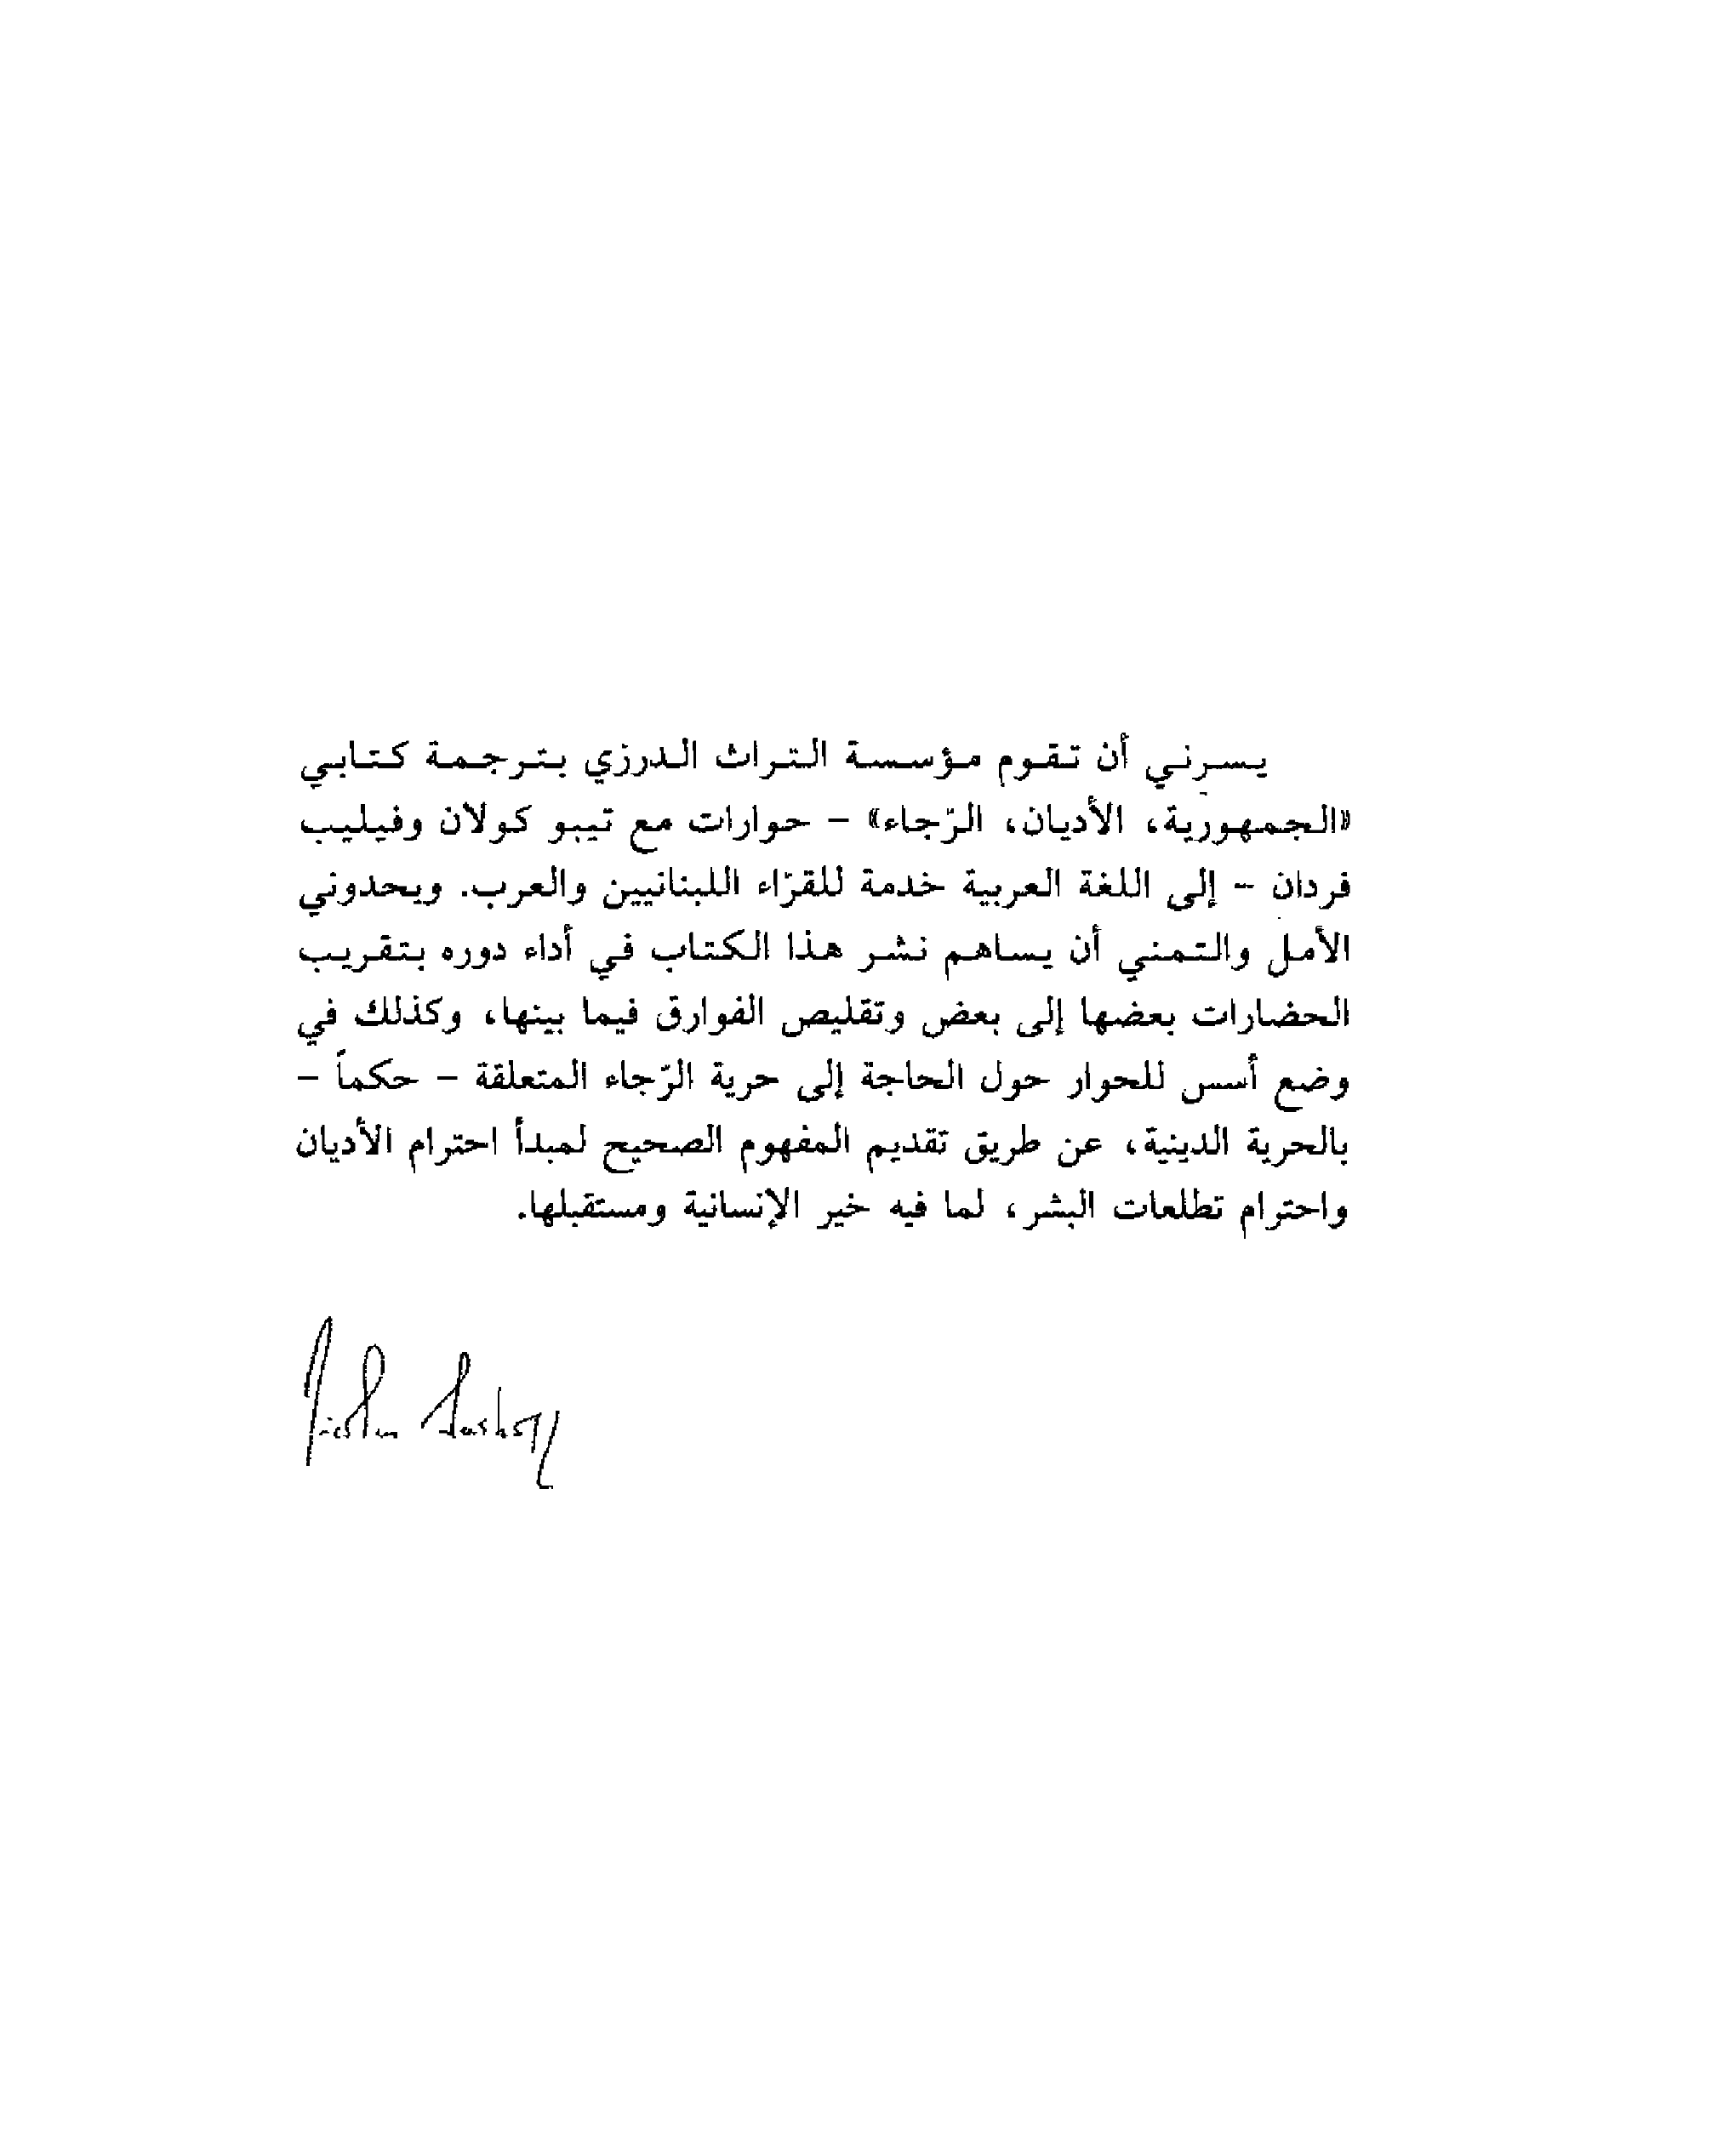 يسرني أن تقوم مؤسسة التراث الدرزي بترجمة كتابي
«الجمهورية، الأديان، الرّجاء» – حوارات مع تيبو كولان وفيليب
فردان – إلى اللغة العربية خدمة للقرّاء اللبنانيين والعرب. ويحدوني
الأمل والتمني أن يساهم نشر هذا الكتاب في أداء دوره بتقريب
الحضارات بعضها إلى بعض وتقليص الفوارق فيما بينها، وكذلك في
وضع أسس للحوار حول الحاجة إلى حرية الرّجاء المتعلقة – حكماً –
بالحرية الدينية، عن طريق تقديم المفهوم الصحيح لمبدأ احترام الأديان
واحترام تطلعات البشر، لما فيه خير الإنسانية ومستقبلها.